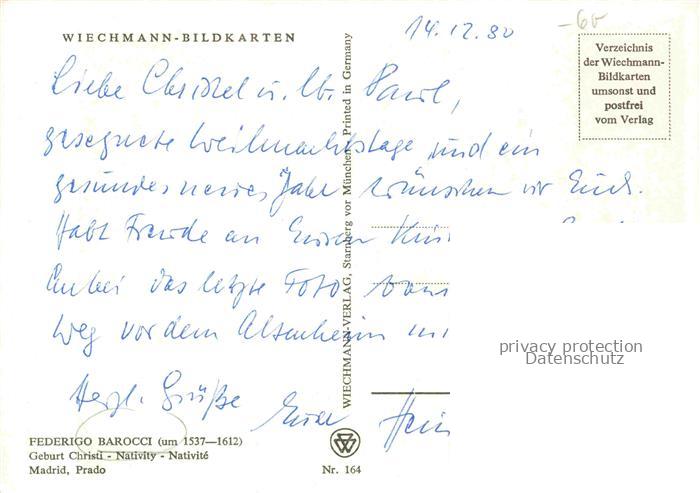 WIECHMANN-BILDKARTEN
14.12.80
Verzeichnis
der Wiechmann-
Bildkarten
umsonst und
postfrei
vom Verlag
Liebe Christel u. lb. Paul,
gesegnete Weihnachtstage und ein
gesundes neues Jahr wünschen wir Euch.
Habt Freude an Euren
Anbei das letzte Foto
Weg vor dem Altenheim
Herzl. Grüße Eure
WIECHMANN-VERLAG, Starnberg vor München · Printed in Germany
privacy protection
Datenschutz
FEDERIGO BAROCCI (um 1537—1612)
Geburt Christi - Nativity - Nativité
Madrid, Prado
Nr. 164